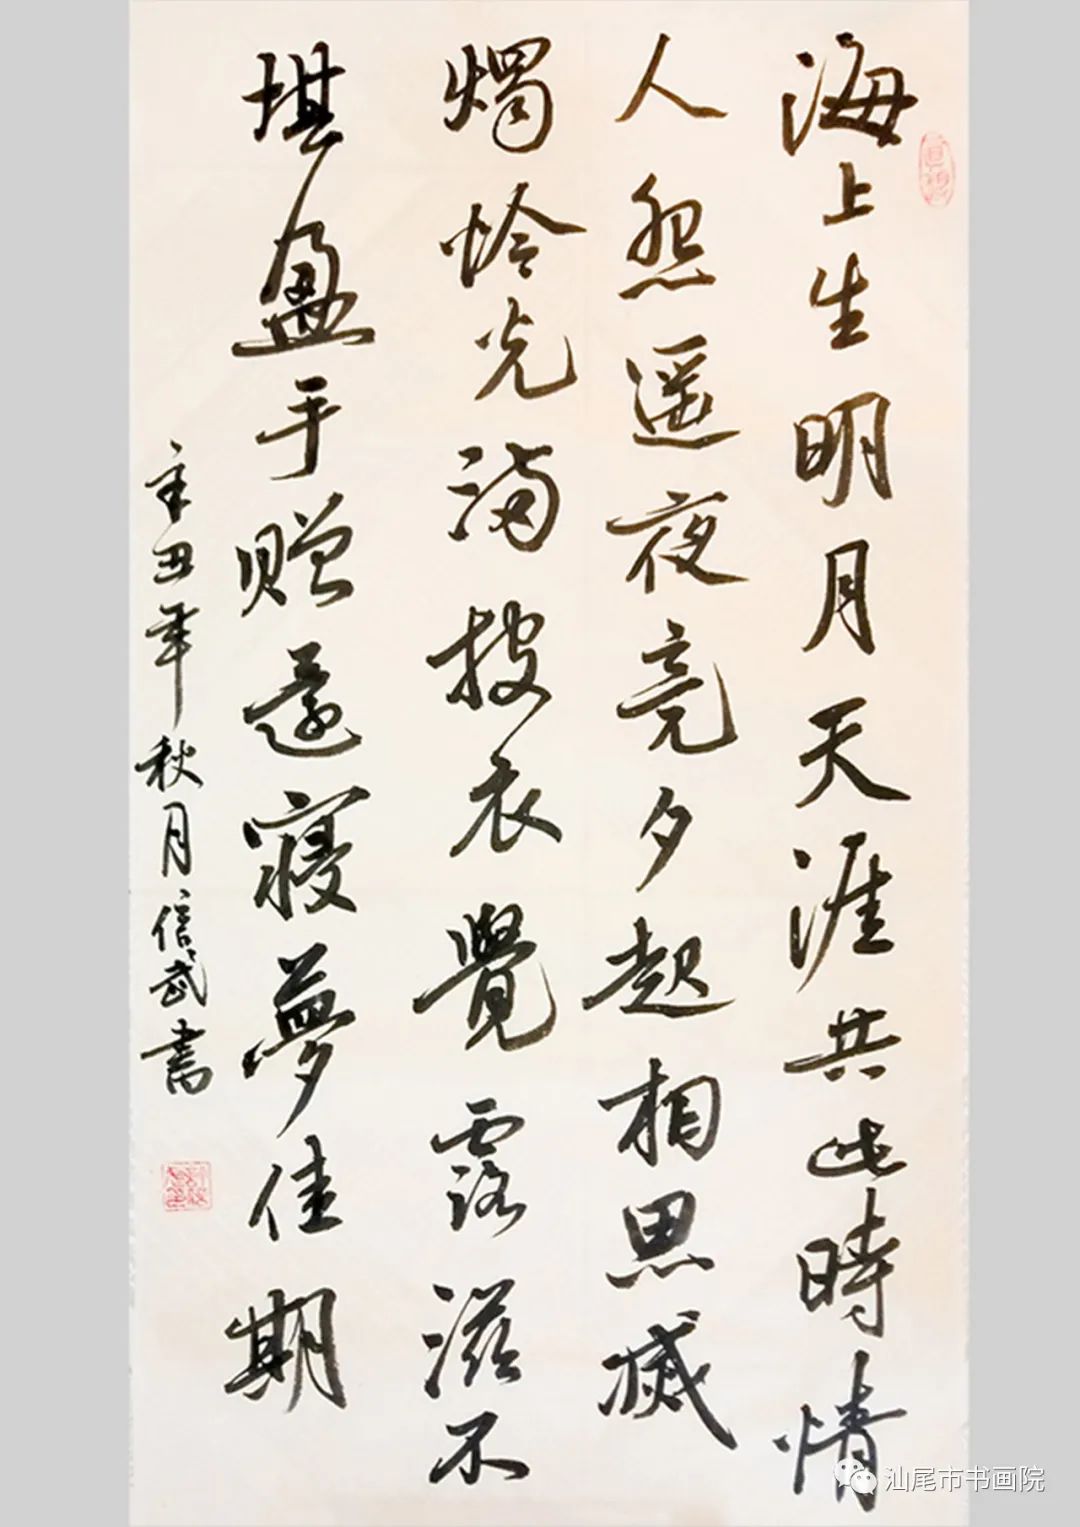 海上生明月天涯共此時情
人怨遥夜竟夕起相思滅
燭怜光满披衣覺露滋不
堪盈手贈還寢夢佳期
辛丑年秋月信武書
汕尾市书画院